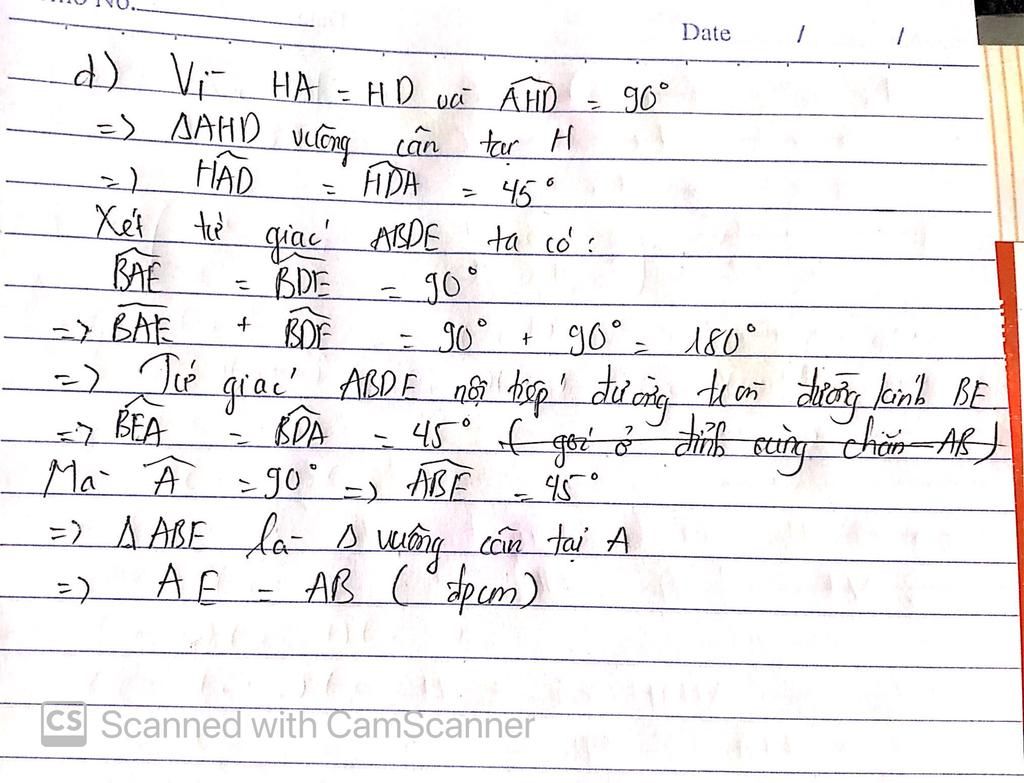 No.
Date / /
d) Vì HA = HD và AHD = 90°
=> ΔAHD vuông cân tại H
=> HAD = HDA = 45°
Xét tứ giác ABDE ta có:
BAE = BDE = 90°
=> BAE + BDE = 90° + 90° = 180°
=> Tứ giác ABDE nội tiếp đường tròn đường kính BE
=> BEA = BDA = 45° (góc ở đỉnh cùng chắn AB)
Mà A = 90° => ABE = 45°
=> Δ ABE là Δ vuông cân tại A
=> AE = AB (đpcm)
CS Scanned with CamScanner